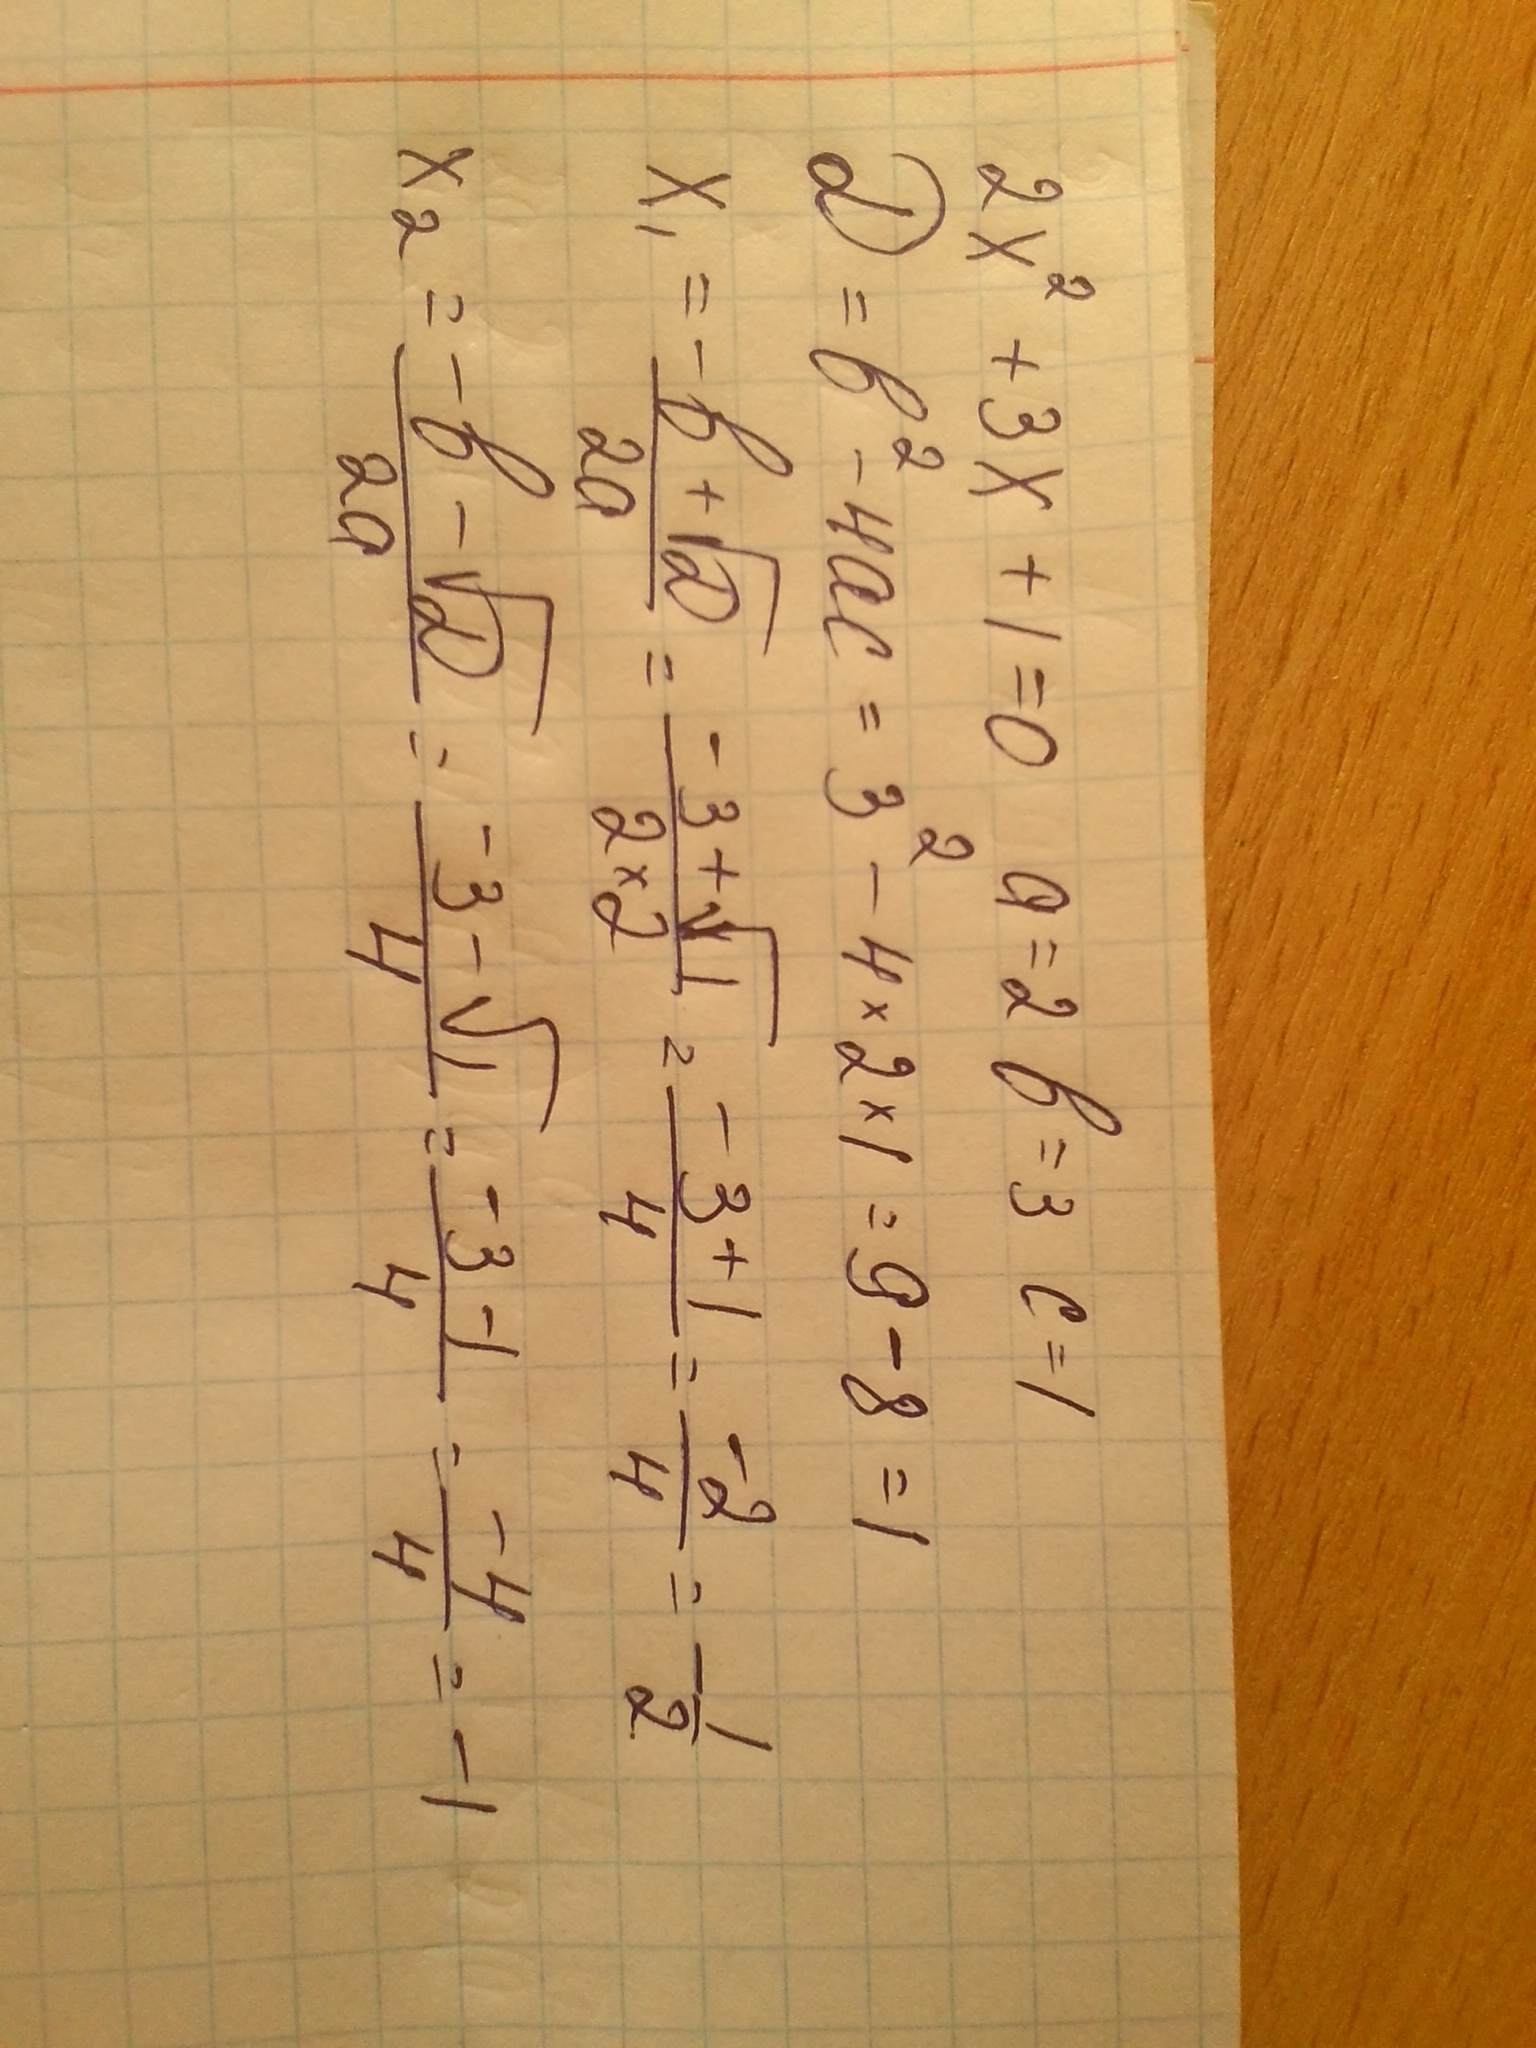 2x² + 3x + 1 = 0 a = 2 b = 3 c = 1
D = b² - 4ac = 3² - 4 × 2 × 1 = 9 - 8 = 1
x₁ = (-b + √D)/(2a) = (-3 + √1)/(2 × 2) = (-3 + 1)/4 = (-2)/4 = -1/2
x₂ = (-b - √D)/(2a) = (-3 - √1)/4 = (-3 - 1)/4 = (-4)/4 = -1